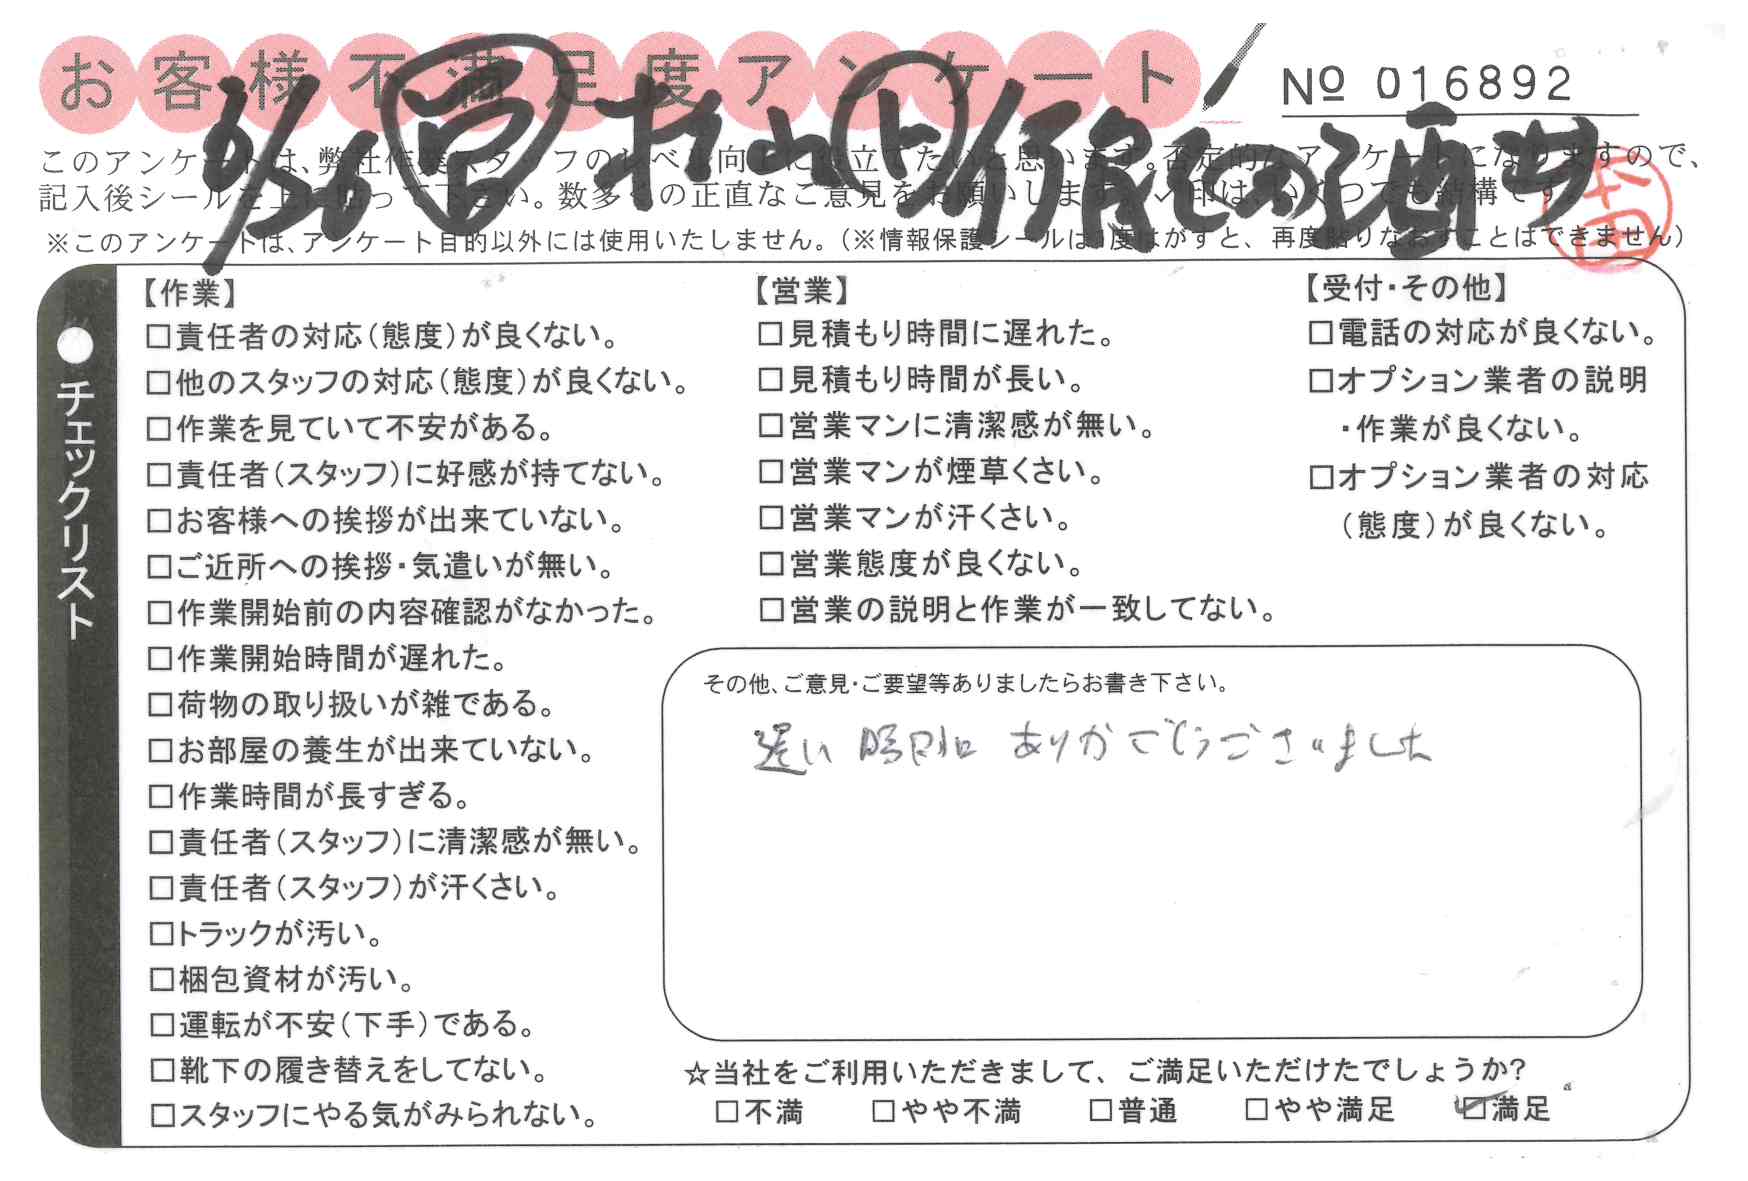 お客様不満足度アンケート
№ 016892
6/26 営 村山 ト
このアンケートは、弊社作業スタッフのレベル向上に役立てたいと思います。否定的なアンケートになりますので、
記入後シールを上に貼って下さい。数多くの正直なご意見をお願いします。✓印は、いくつでも結構です。
※このアンケートは、アンケート目的以外には使用いたしません。（※情報保護シールは1度はがすと、再度貼りなおすことはできません）
●チェックリスト
【作業】
□責任者の対応（態度）が良くない。
□他のスタッフの対応（態度）が良くない。
□作業を見ていて不安がある。
□責任者（スタッフ）に好感が持てない。
□お客様への挨拶が出来ていない。
□ご近所への挨拶・気遣いが無い。
□作業開始前の内容確認がなかった。
□作業開始時間が遅れた。
□荷物の取り扱いが雑である。
□お部屋の養生が出来ていない。
□作業時間が長すぎる。
□責任者（スタッフ）に清潔感が無い。
□責任者（スタッフ）が汗くさい。
□トラックが汚い。
□梱包資材が汚い。
□運転が不安（下手）である。
□靴下の履き替えをしてない。
□スタッフにやる気がみられない。
【営業】
□見積もり時間に遅れた。
□見積もり時間が長い。
□営業マンに清潔感が無い。
□営業マンが煙草くさい。
□営業マンが汗くさい。
□営業態度が良くない。
□営業の説明と作業が一致してない。
【受付・その他】
□電話の対応が良くない。
□オプション業者の説明
・作業が良くない。
□オプション業者の対応
（態度）が良くない。
その他、ご意見・ご要望等ありましたらお書き下さい。
遅い時間 ありがとうございました
☆当社をご利用いただきまして、ご満足いただけたでしょうか?
□不満 □やや不満 □普通 □やや満足 ☑満足